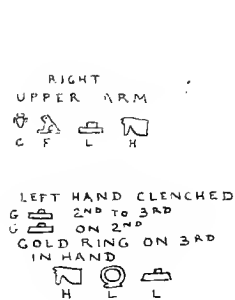 RIGHT
UPPER ARM
C F L H
LEFT HAND CLENCHED
G 2ND TO 3RD
G ON 2ND
GOLD RING ON 3RD
IN HAND
H L L